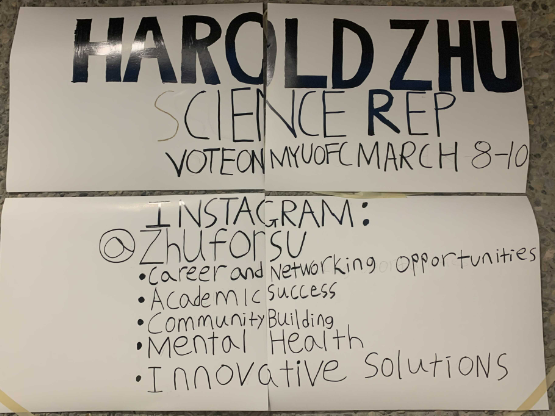 HAROLD ZHU
SCIENCE REP
VOTE ON MYUOFC MARCH 8-10
INSTAGRAM:
@Zhuforsu
•Career and Networking opportunities
•Academic Success
•Community Building
•Mental Health
•Innovative Solutions